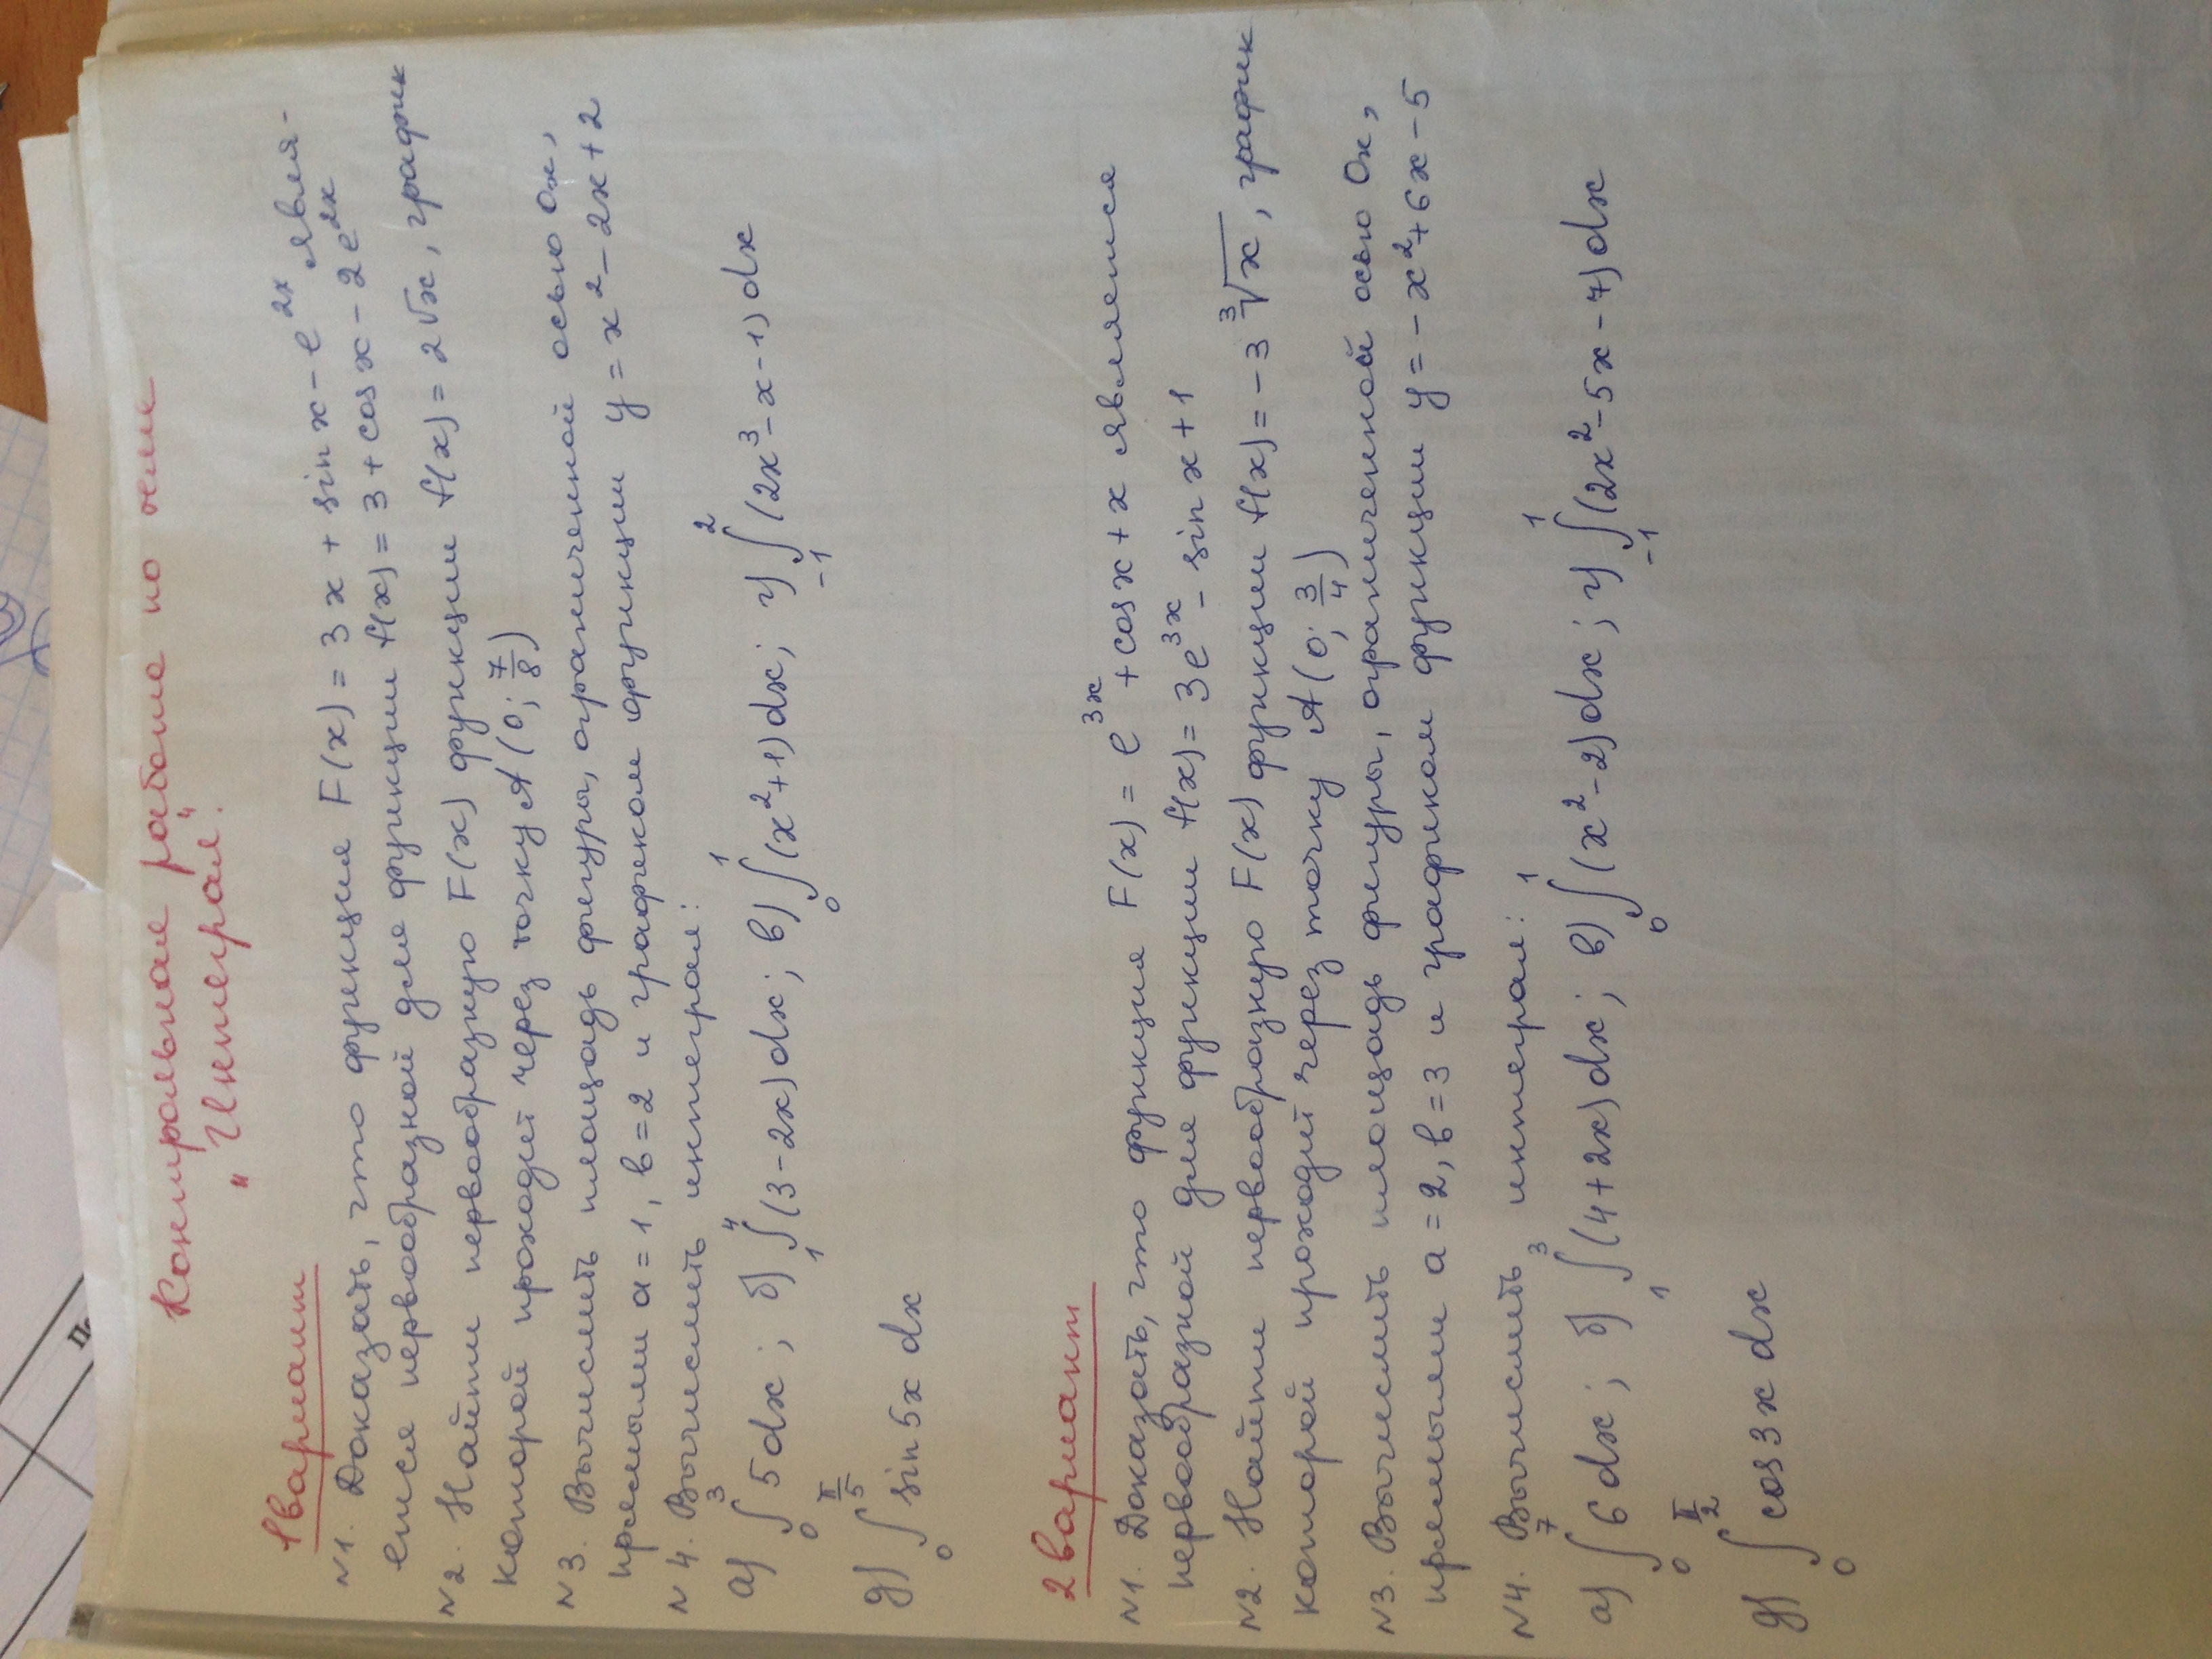 Контрольная работа по теме
„Интеграл".
1 вариант
N1. Доказать, что функция F(x) = 3x + sin x − e^{2x} явля-
ется первообразной для функции f(x) = 3 + cos x − 2e^{2x}
N2. Найти первообразную F(x) функции f(x) = 2√x, график
которой проходит через точку A(0; 7/8)
N3. Вычислить площадь фигуры, ограниченной осью Ox,
прямыми a = 1, b = 2 и графиком функции y = x² − 2x + 2
N4. Вычислить интеграл:
а) ∫₀³ 5dx; б) ∫₁⁴ (3−2x)dx; в) ∫₀¹ (x²+1)dx; г) ∫₋₁² (2x³−x−1)dx
д) ∫₀^{π/5} sin 5x dx
2 вариант
N1. Доказать, что функция F(x) = e^{3x} + cos x + x является
первообразной для функции f(x) = 3e^{3x} − sin x + 1
N2. Найти первообразную F(x) функции f(x) = −3 ∛x, график
которой проходит через точку A(0; 3/4)
N3. Вычислить площадь фигуры, ограниченной осью Ox,
прямыми a = 2, b = 3 и графиком функции y = −x² + 6x − 5
N4. Вычислить интеграл:
а) ∫₀⁷ 6dx; б) ∫₁³ (4+2x)dx; в) ∫₀¹ (x²−2)dx; г) ∫₋₁¹ (2x²−5x−7)dx
д) ∫₀^{π/2} cos 3x dx